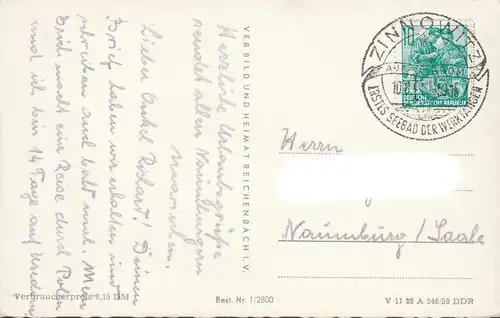 Herzliche Urlaubsgrüße
sendet allen Naumburgern
Lieber Onkel Richard! Deinen
Brief haben wir erhalten und
schreiben auch bald mal. Mein
Brich macht eine Reise durch Polen
und ich bin 14 Tage auf Usedom
VEB BILD UND HEIMAT REICHENBACH I. V.
ZINNOWITZ
AUF USEDOM
ERSTES SEEBAD DER WERKTÄTIGEN
10
DEUTSCHE
DEMOKRATISCHE REPUBLIK
Herrn
Naumburg/Saale
Verbraucherpreis 0,15 DM
Best. Nr. 1/2800
V·11·28 A 246/59 DDR